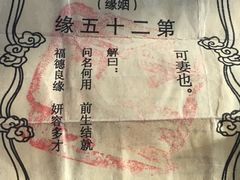 （姻缘）
第二十五缘
可妻也。
解曰：
问名何用 前生结就
福德良缘 妍容多才